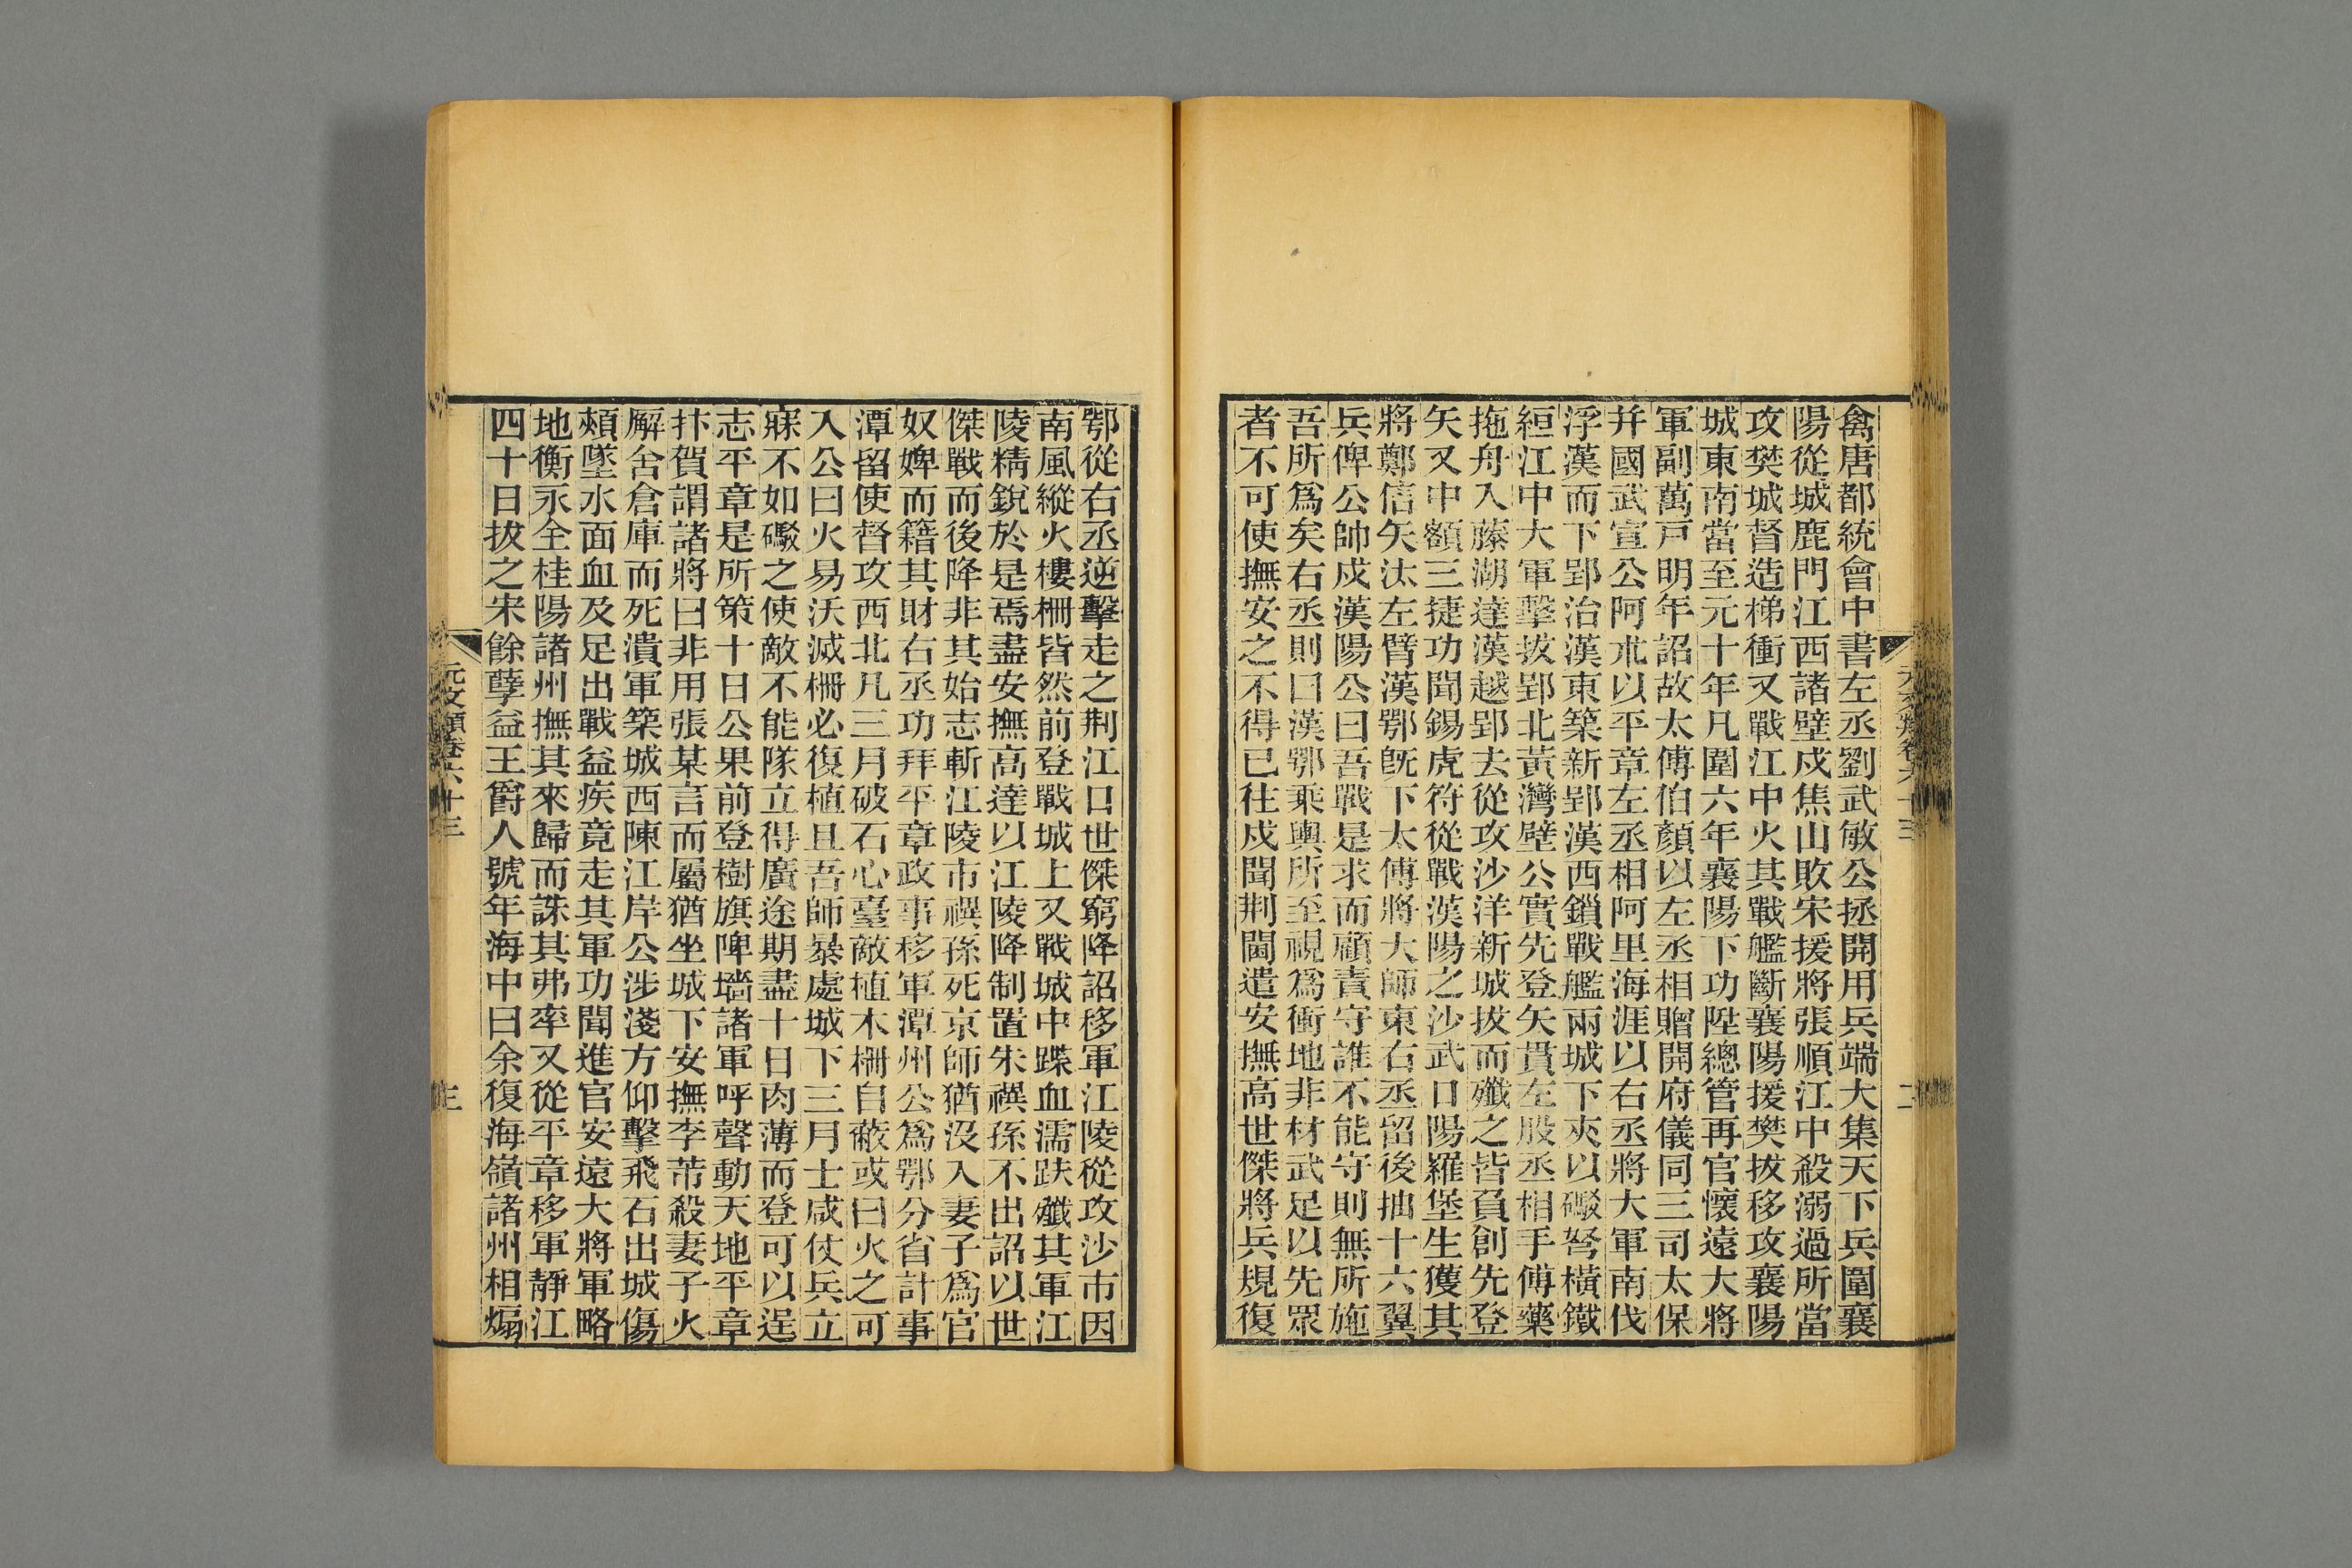 禽唐都統會中書左丞劉武敏公拯開用兵端大集天下兵圍襄
陽從城鹿門江西諸壁戍焦山敗宋援將張順江中殺溺過所當
攻樊城督造梯衝又戰江中火其戰艦斷襄陽援樊拔移攻襄陽
城東南當至元十年凡圍六年襄陽下功陞總管再官懷遠大將
軍副萬戸明年詔故太傅伯顏以左丞相贈開府儀同三司太保
幷國武宣公阿朮以平章左丞相阿里海涯以右丞將大軍南伐
浮漢而下郢治漢東築新郢漢西鎖戰艦兩城下夾以礮弩橫鐵
絙江中大軍擊拔郢北黃灣壁公實先登矢貫左股丞相手傅藥
拖舟入藤湖達漢越郢去從攻沙洋新城拔而殲之皆負創先登
矢又中額三捷功聞錫虎符從戰漢陽之沙武口陽羅堡生獲其
將鄭信矢汰左臂漢鄂旣下太傅將大師東右丞留後抽十六翼
兵俾公帥戍漢陽公曰吾戰是求而顧責守誰不能守則無所施
吾所爲矣右丞則曰漢鄂乘輿所至視爲衝地非材武足以先眾
者不可使撫安之不得已往戍聞荆閫遣安撫高世傑將兵規復
鄂從右丞逆擊走之荆江口世傑窮降詔移軍江陵從攻沙市因
南風縱火樓柵皆然前登戰城上又戰城中蹀血濡趺殲其軍江
陵精銳於是焉盡安撫高達以江陵降制置朱禩孫不出詔以世
傑戰而後降非其始志斬江陵市禩孫死京師猶没入妻子爲官
奴婢而籍其財右丞功拜平章政事移軍潭州公爲鄂分省計事
潭留使督攻西北凡三月破石心臺敵植木柵自蔽或曰火之可
入公曰火易沃滅柵必復植且吾師暴處城下三月士咸仗兵立
寐不如礮之使敵不能隊立得廣途期盡十日肉薄而登可以逞
志平章是所策十日公果前登樹旗陴墻諸軍呼聲動天地平章
抃賀謂諸將曰非用張某言而屬猶坐城下安撫李芾殺妻子火
廨舍倉庫而死潰軍築城西陳江岸公涉淺方仰擊飛石出城傷
頰墜水面血及足出戰益疾竟走其軍功聞進官安遠大將軍略
地衡永全桂陽諸州撫其來歸而誅其弗率又從平章移軍靜江
四十日拔之宋餘孽益王爵人號年海中曰余復海嶺諸州相煽
元文類卷六十三